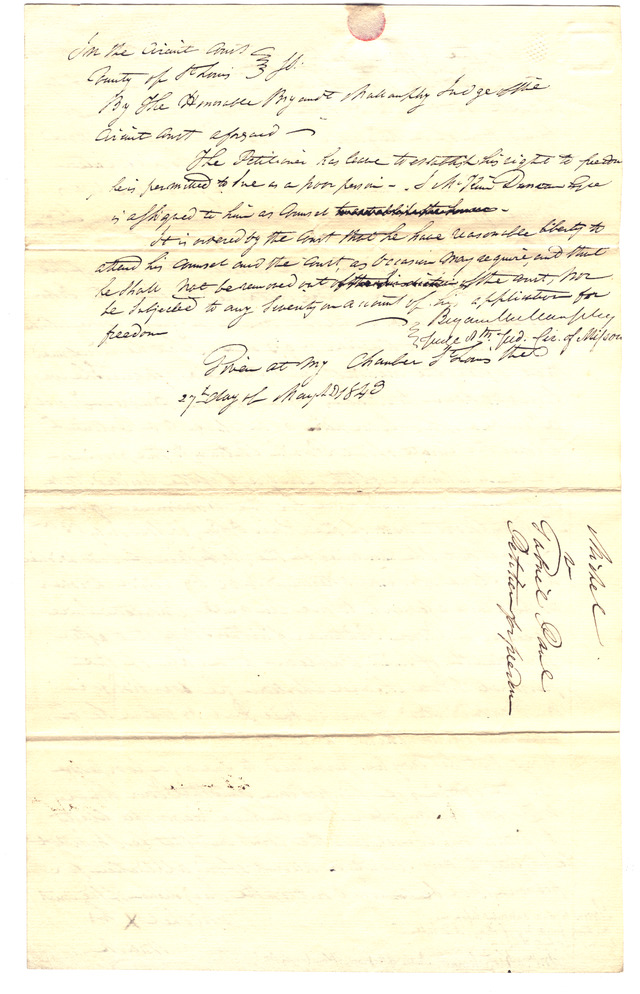 In the Circuit Court
County of St Louis } Sct.
By The Honorable Bryan Mullanphy Judge of the
Circuit Court aforesaid —
The Petitioner has leave to establish his right to freedom
he is permitted to sue as a poor person — Duncan Esqre
is assigned to him as Counsel
It is ordered by the Court that he have reasonable liberty to
attend his Counsel and the Court, as occasion may require, and that
he shall not be removed out of the jurisdiction of the Court, nor
be subjected to any severity on account of his application for
freedom
Bryan Mullanphy
Judge 8th Jud. Cir. of Missouri
Given at my Chamber St Louis the
27th day of 1843
Michel
v
Gabriel Paul
Petition for freedom